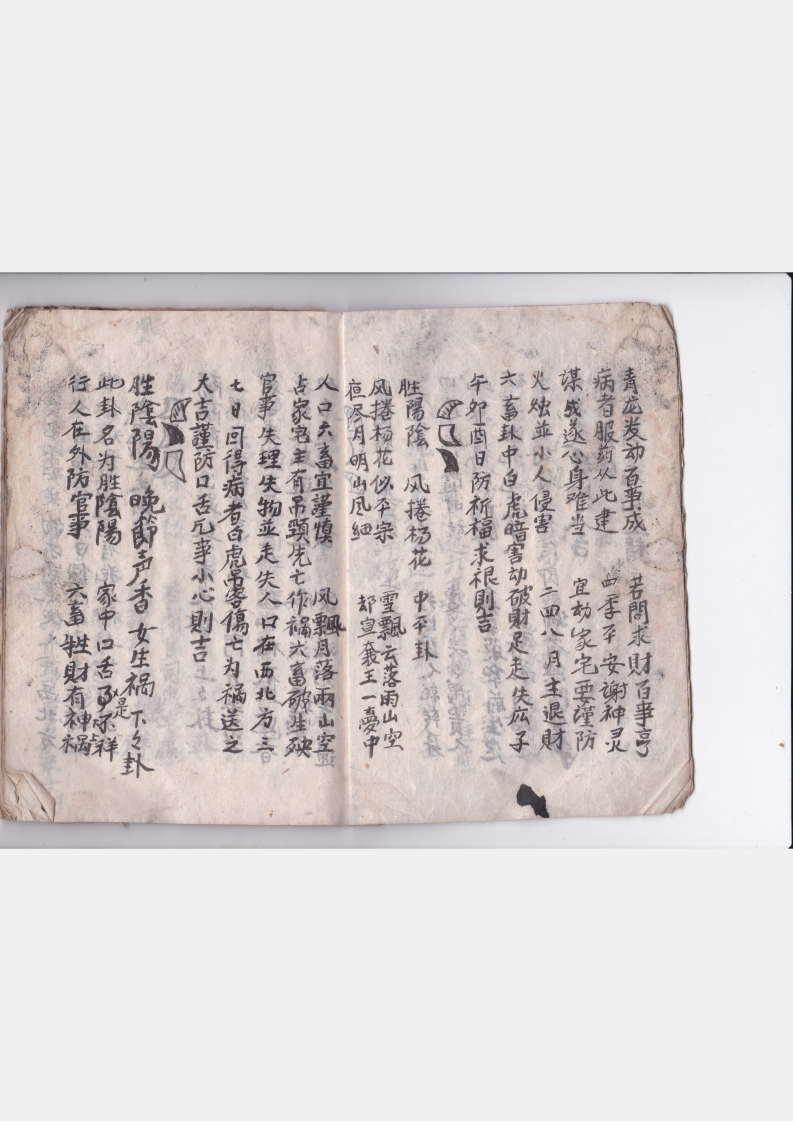 青龙发动百事成 若問求财百事亨
病者服药从此建 四季平安謝神灵
谋成遂心身难当 宜劫家宅要謹防
火烛並小人侵害 二四八月主退財
六畜卦中白虎暗害劫破財足走失広子
午卯酉日防祈福求祿則吉
胜陽陰 风捲杨花 中平卦
风捲杨花似平宗 雪飄云落雨山空
夜尽月明山风細 却宣襄王一憂中
人口六畜宜謹慎 风飄月落雨山空
占家宅主有吊頸先亡作禍六畜破生殃
官事失理失物並走失人口在西北方三
七日回得病者白虎吊客傷亡为禍送之
大吉謹防口舌凡事小心則吉
胜陰陽 晚節声香 女生禍 下々卦
此卦名为胜陰陽 家中口舌是不祥
行人在外防官事 六畜牲財有神禍